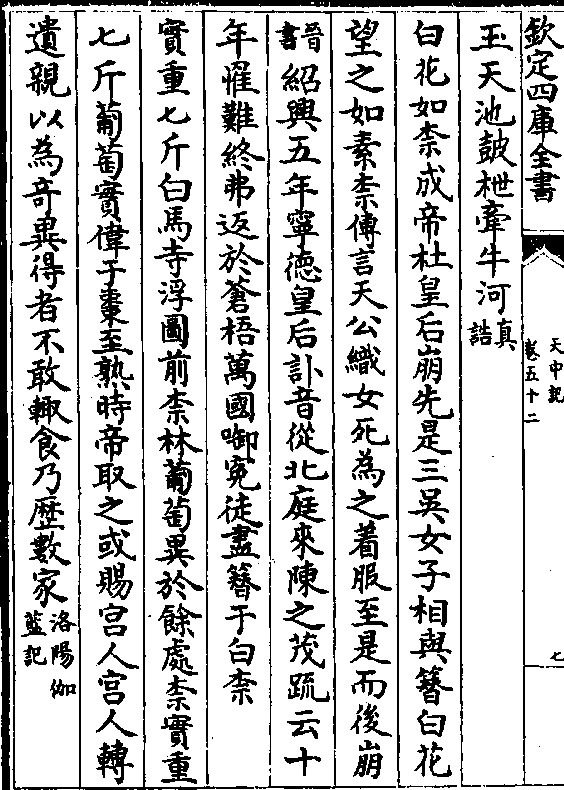 欽定四庫全書
天中記
卷五十二
七
玉天池皷枻牽牛河真誥
白花如柰成帝杜皇后崩先是三吳女子相與簪白花
望之如素柰傅言天公織女死為之着服至是而後崩
晉書紹興五年寧德皇后訃音從北庭來陳之茂䟽云十
年罹難終弗返於蒼梧萬國啣寃徒盡簪于白柰
實重七斤白馬寺浮圖前柰林葡萄異於餘處柰實重
七斤葡萄實偉于棗至熟時帝取之或賜宫人宫人轉
遺親以為奇異得者不敢輙食乃歴數家洛陽伽藍記